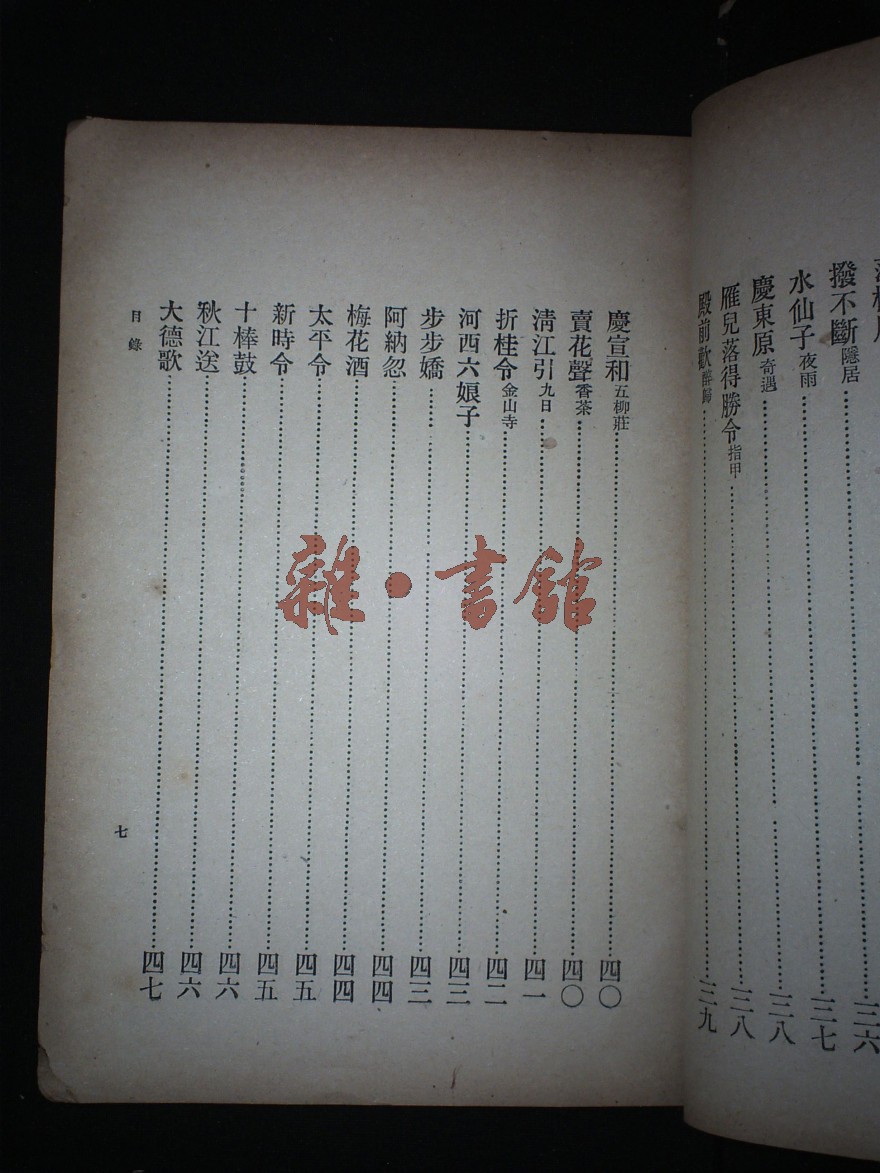 撥不斷隱居……三六
水仙子夜雨……三七
慶東原奇遇……三八
雁兒落得勝令指甲……三八
殿前歡醉歸……三九
慶宣和五柳莊……四〇
賣花聲香茶……四〇
清江引九日……四一
折桂令金山寺……四二
河西六娘子……四三
步步嬌……四三
阿納忽……四四
梅花酒……四四
太平令……四五
新時令……四五
十棒鼓……四六
秋江送……四六
大德歌……四七
目錄
七
雜·書館